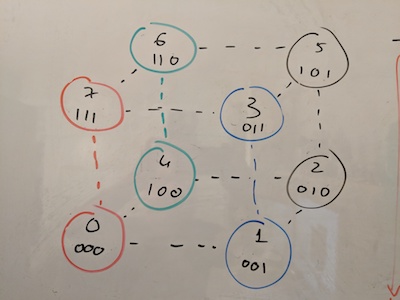 6
110
5
101
7
111
3
011
4
100
2
010
0
000
1
001